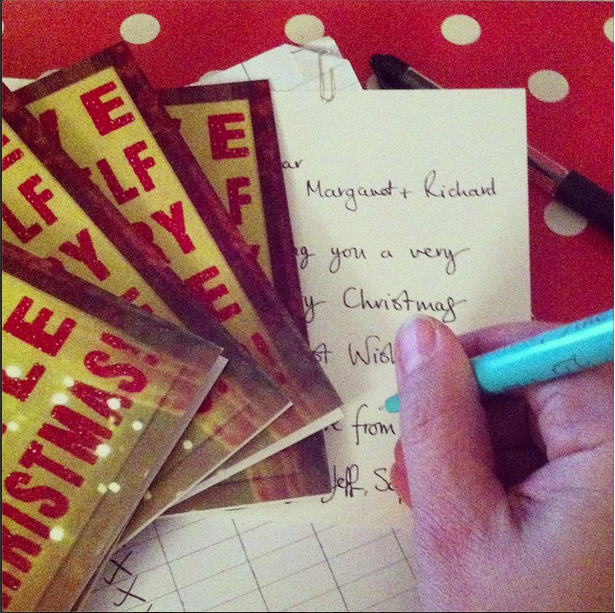 E
F
Y E
LF
RY
E
LF
LE
RISTMAS!
ar
Margaret + Richard
g you a very
y Christmas
st Wish
e from
Jeff, S